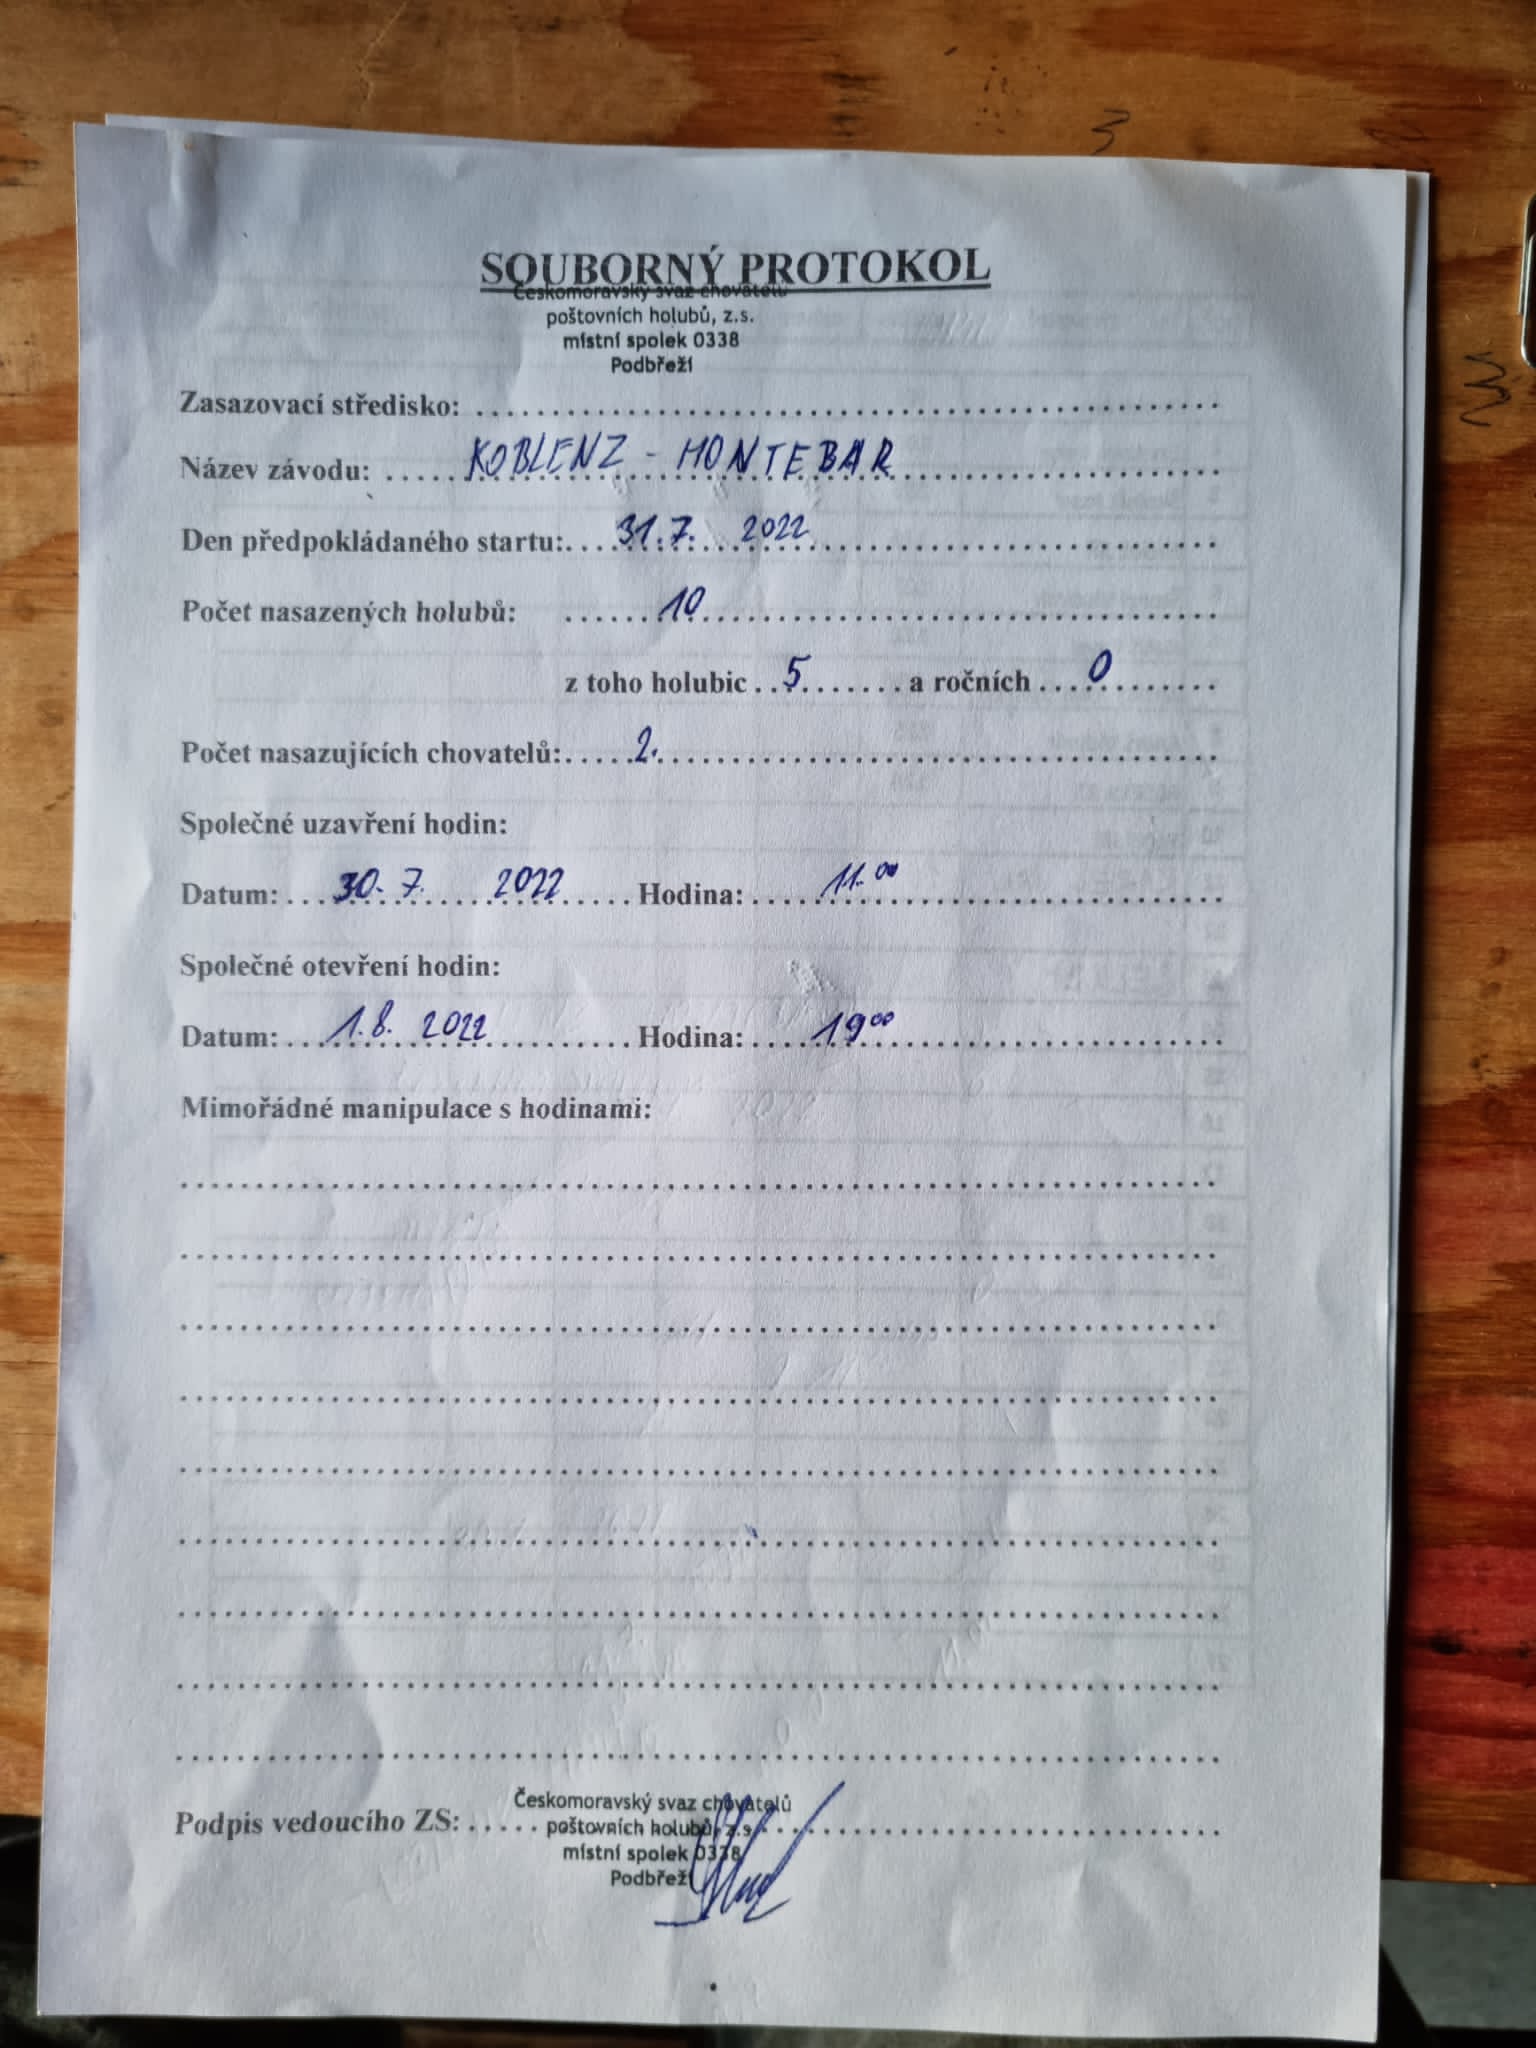 SOUBORNÝ PROTOKOL
Českomoravský svaz chovatelů
poštovních holubů, z.s.
místní spolek 0338
Podbřeží
Zasazovací středisko:
Název závodu: KOBLENZ - MONTEBAR
Den předpokládaného startu: 31.7. 2022
Počet nasazených holubů: 10
z toho holubic 5 a ročních 0
Počet nasazujících chovatelů: 2.
Společné uzavření hodin:
Datum: 30. 7. 2022 Hodina: 11.00
Společné otevření hodin:
Datum: 1.8. 2022 Hodina: 19 00
Mimořádné manipulace s hodinami:
Českomoravský svaz chovatelů
Podpis vedoucího ZS: poštovních holubů, z.s.
místní spolek 0338
Podbřeží